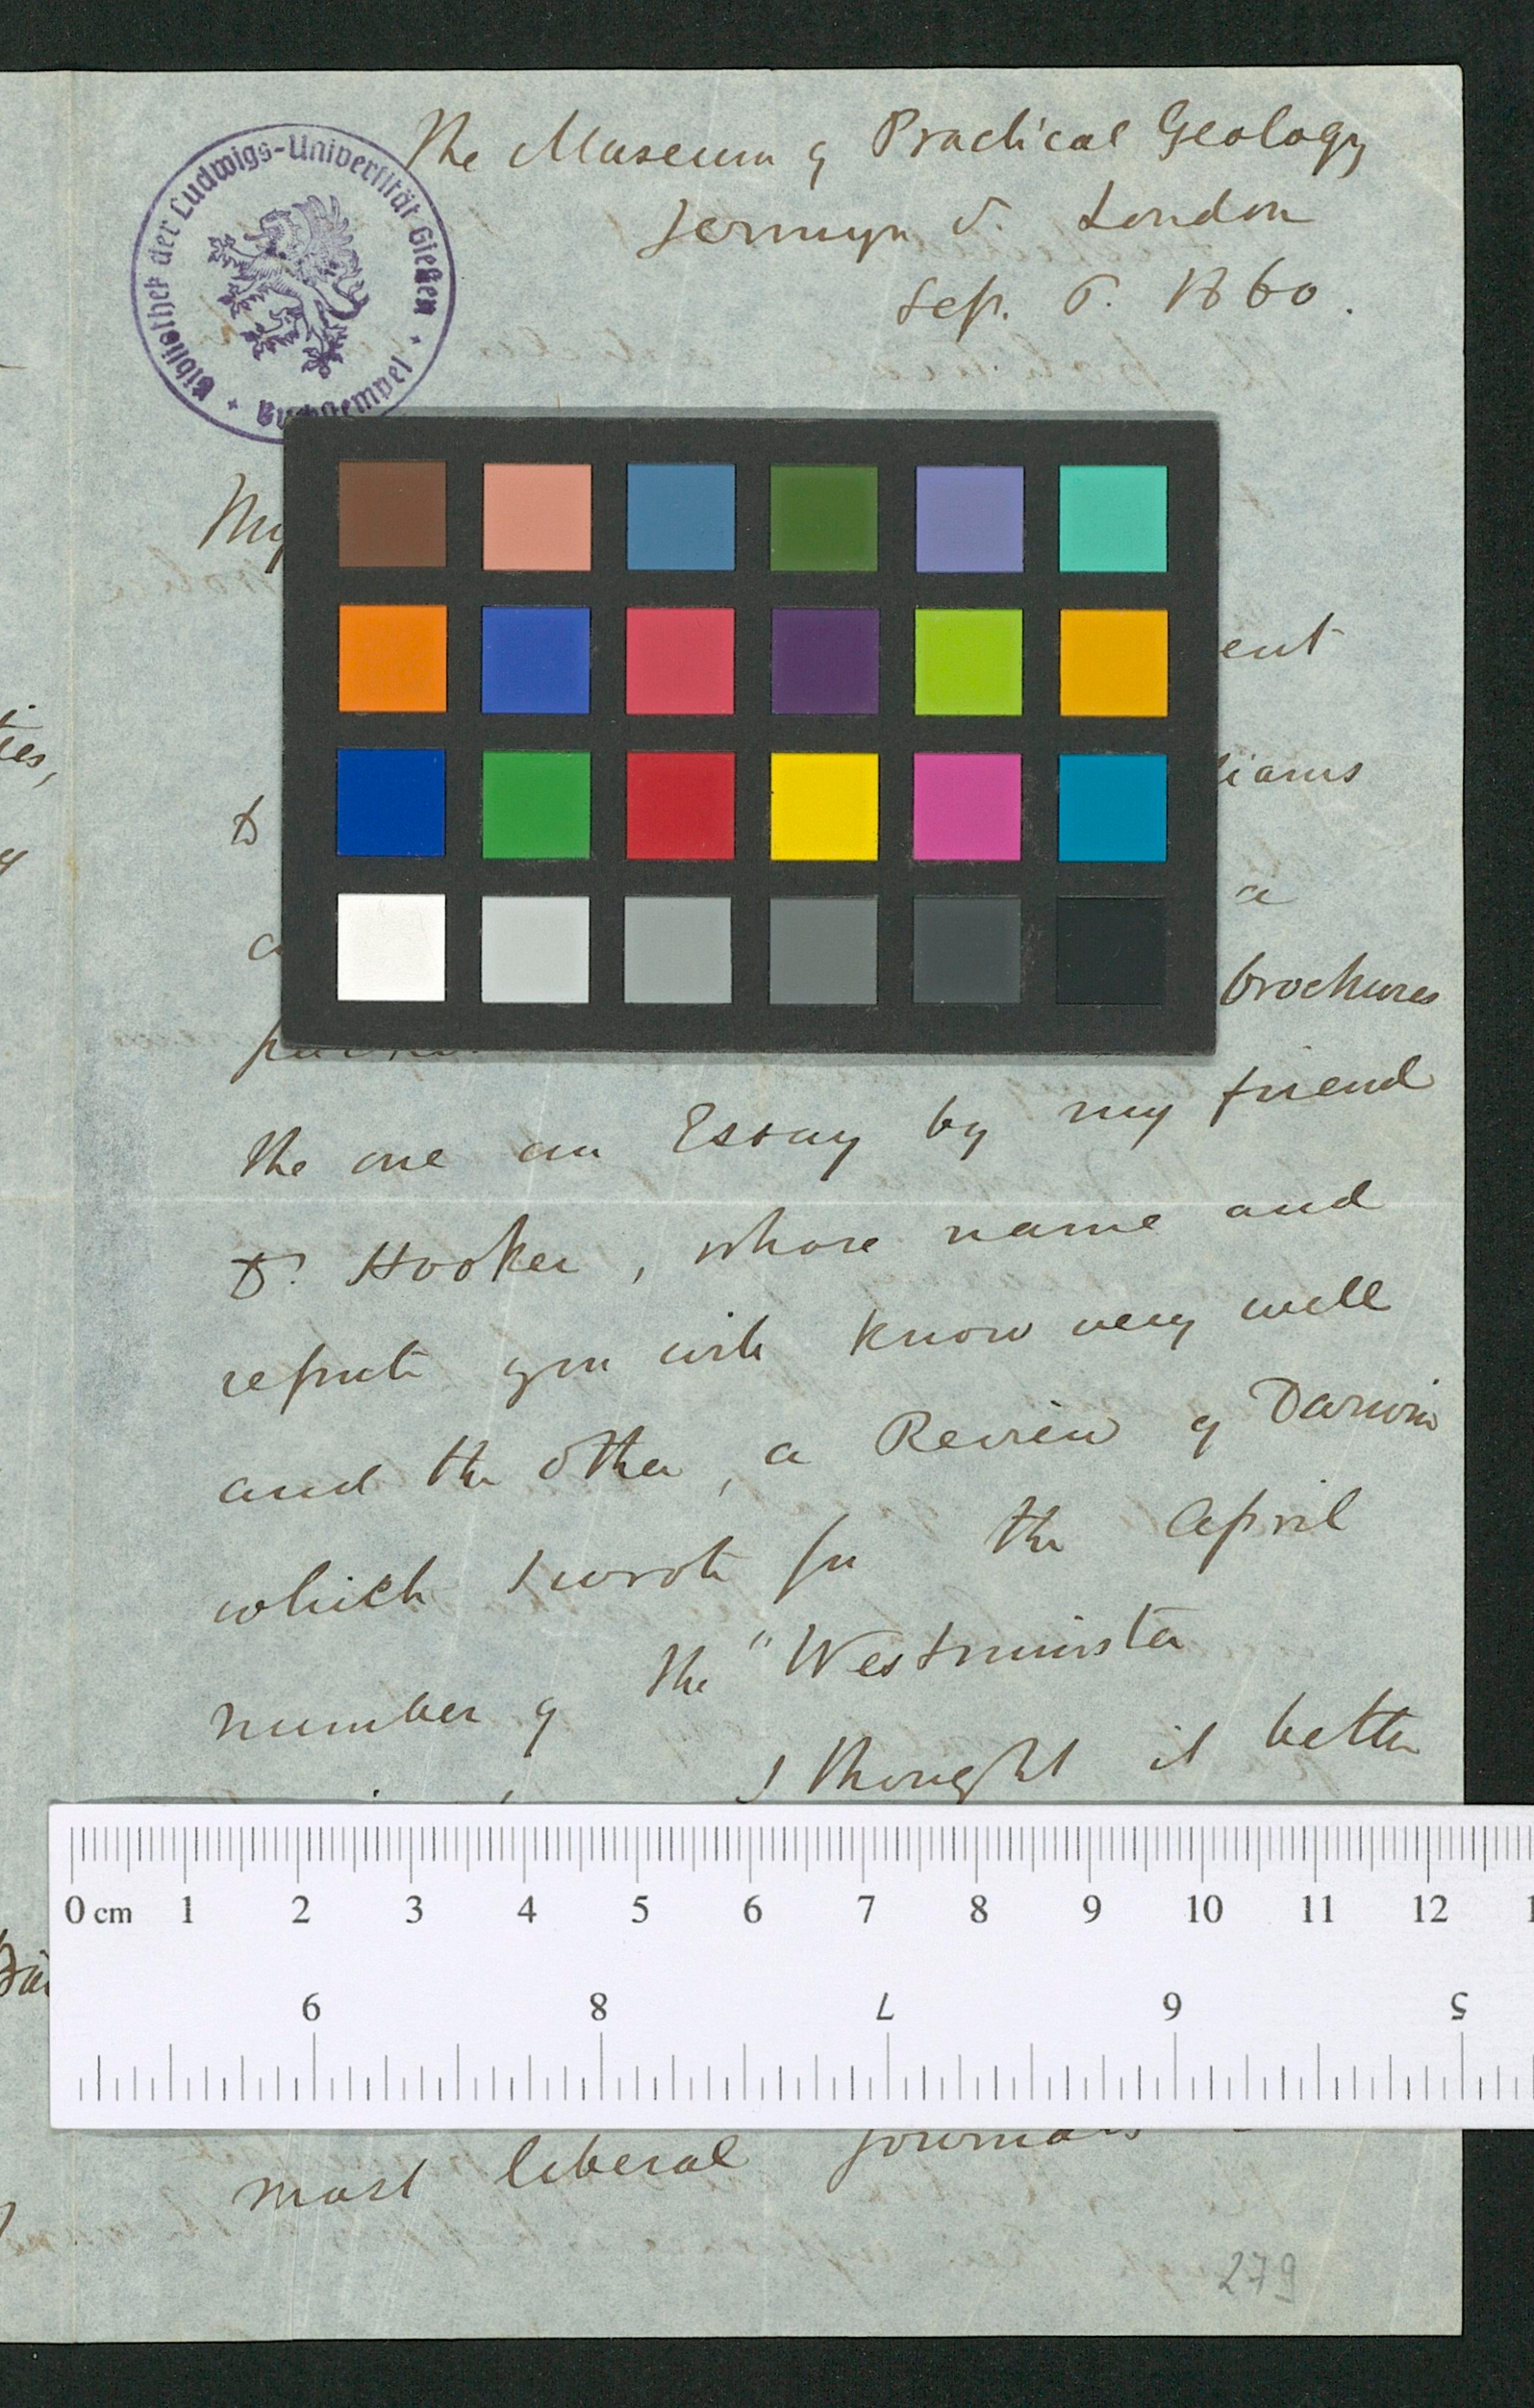 The Museum of Practical Geology
Jermyn St. London
Sep. 6. 1860.
Bibliothek der Ludwigs-Universität Gießen
My
ent
liams
to
a
brochures
the one an Essay by my friend
Dr. Hooker, whose name and
repute you will know very well
and the other, a Review of Darwin
which I wrote for the April
number of the "Westminster
I thought it better
0 cm 1 2 3 4 5 6 7 8 9 10 11 12
9 8 7 6 5
most liberal journals
279
ies,